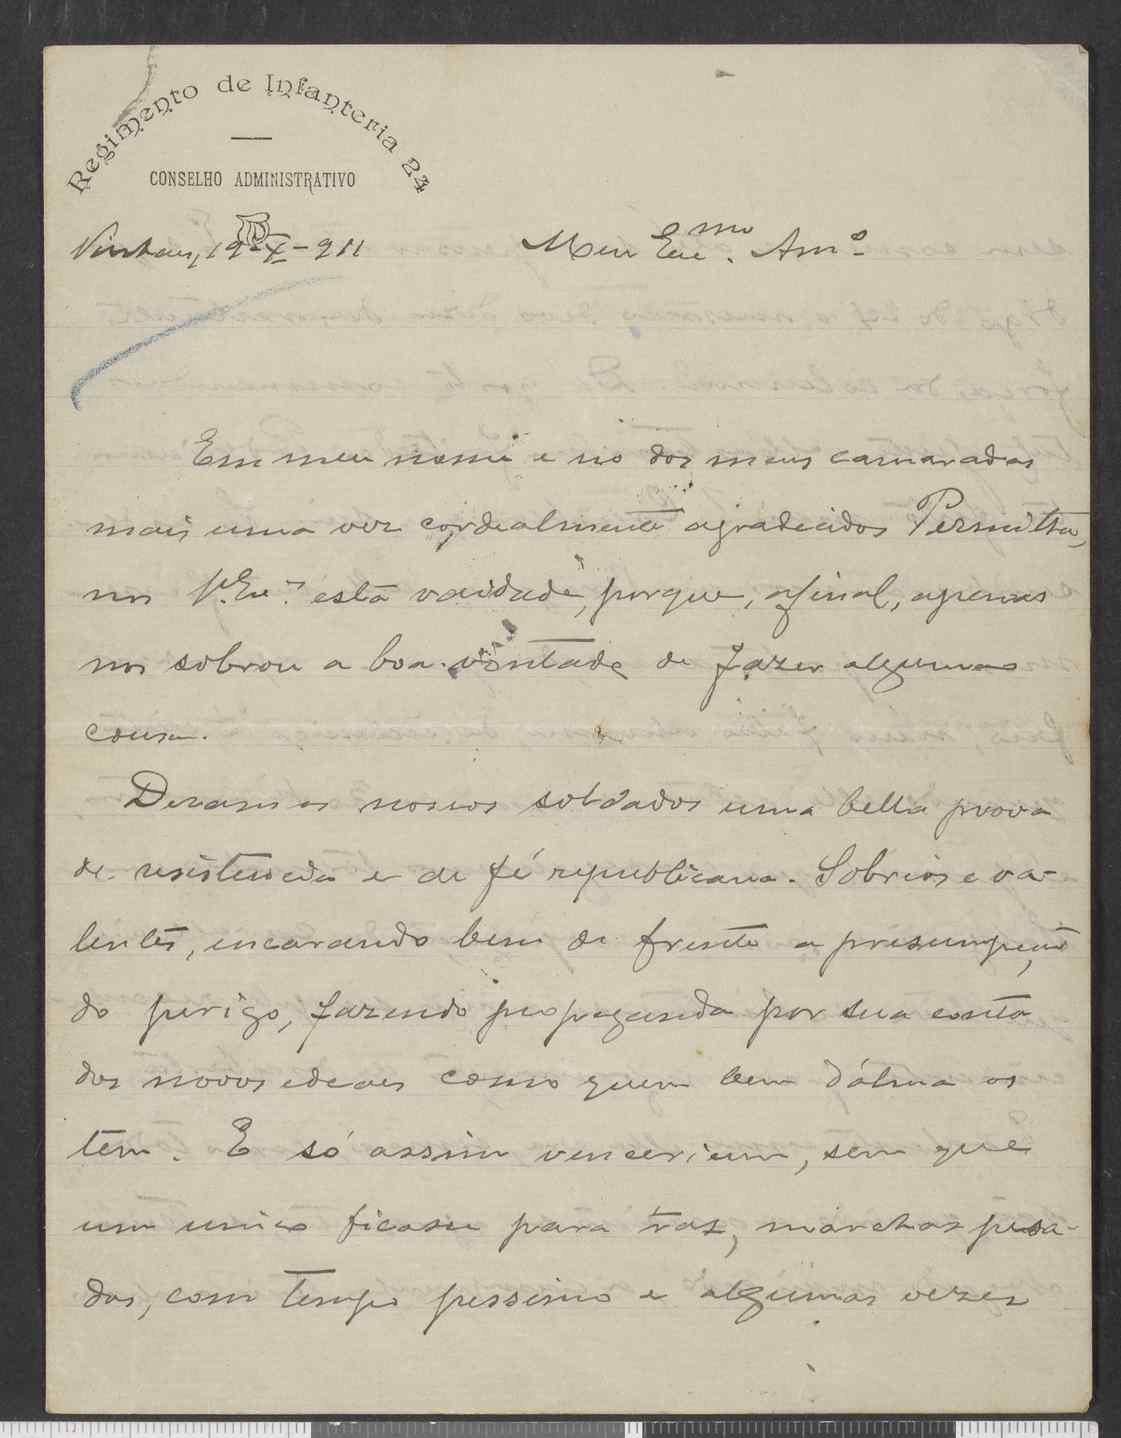 Regimento de Infanteria 24
CONSELHO ADMINISTRATIVO
Vinhaes, 19-X-911
Meu Exe.mo Am.o
Em meu nome e no dos meus camaradas
mais uma vez cordealmente agradecidos Permitta,
nos V. Exe.a esta vaidade, porque, afinal, apenas
nos sobrou a boa vontade de fazer algumas
cousa.
Deram os nossos soldados uma bella prova
de resistencia e de fé republicana. Sobrios e va-
lentes, encarando bem de frente a presumpção
do perigo, fazendo propaganda por sua conta
dos novos ideaes como quem bem d'alma os
tem. E só assim venceriam, sem que
um unico ficasse para traz, marchas pesa-
das, com tempo pessimo e algumas vezes